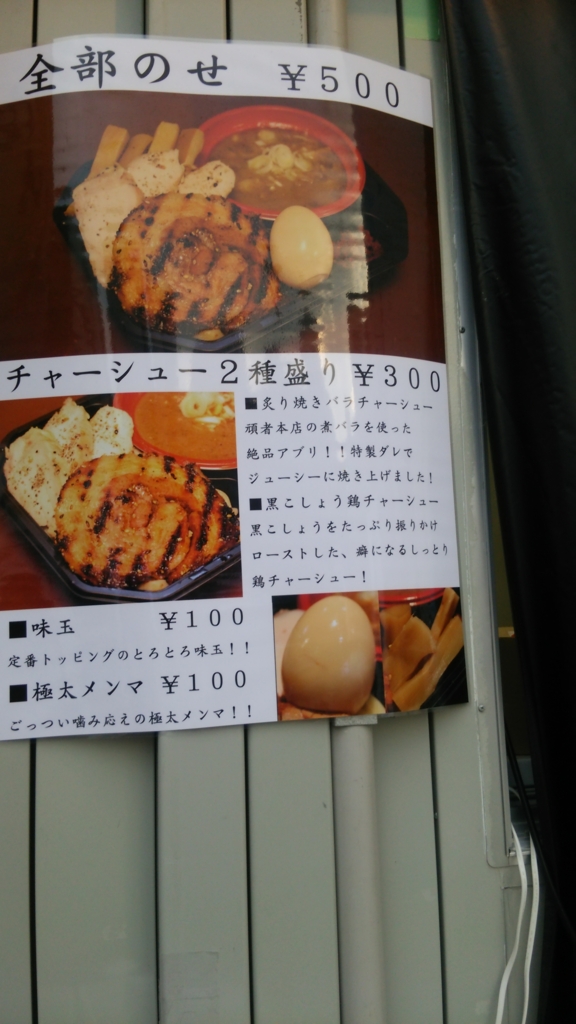 全部のせ ￥500
チャーシュー2種盛り￥300
■炙り焼きバラチャーシュー
頑者本店の煮バラを使った
絶品アブリ！！特製ダレで
ジューシーに焼き上げました！
■黒こしょう鶏チャーシュー
黒こしょうをたっぷり振りかけ
ローストした、癖になるしっとり
鶏チャーシュー！
■味玉 ￥100
定番トッピングのとろとろ味玉！！
■極太メンマ ￥100
ごっつい噛み応えの極太メンマ！！